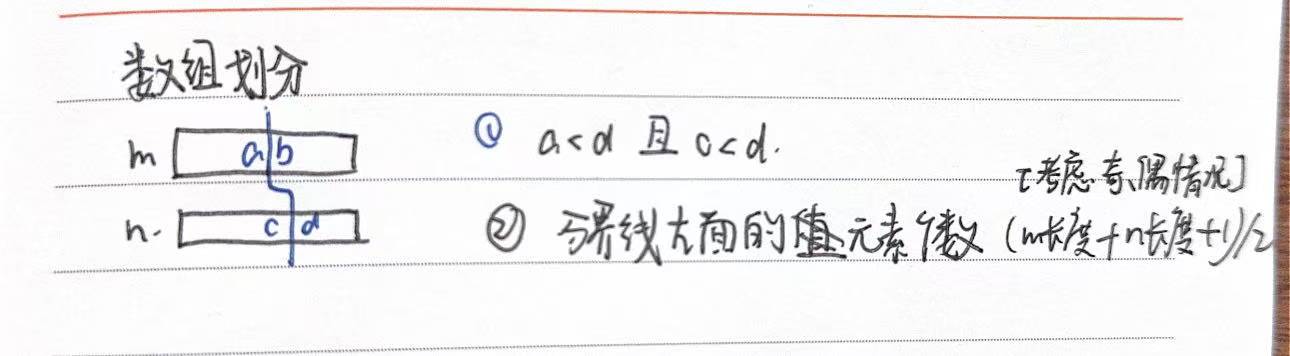 数组划分
m a b
① a<d 且 c<d.
[考虑奇、偶情况]
n. c d
② 分界线左面的值元素个数 (m长度+n长度+1)/2